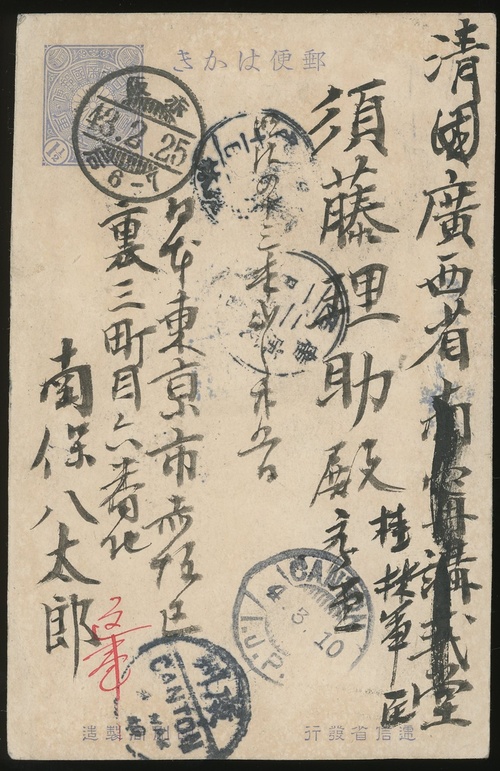 郵便はかき
清國廣西省南寧講武堂
桂林軍医
須藤理助殿
明治四十三年
日本東京市赤坂区
裏三町目六番地
南保八太郎
43.2.25
6-7
CANTON
4.3.10
I.J.P.
CANTON
遞信省發行
印刷局製造